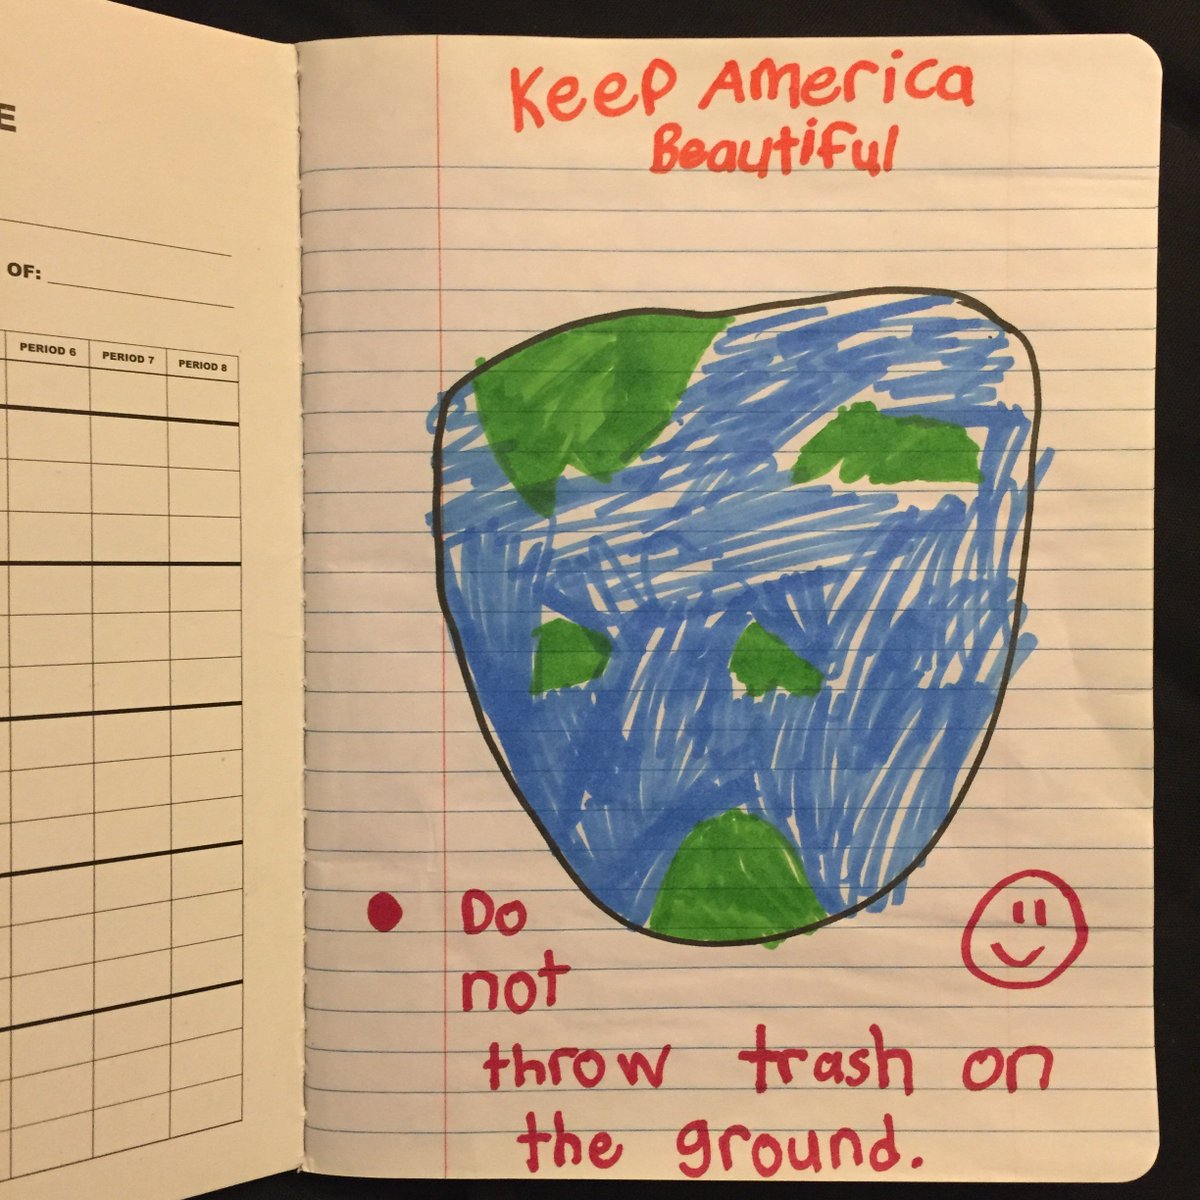 E
OF:
PERIOD 6 PERIOD 7 PERIOD 8
Keep America
Beautiful
Do
not
throw trash on
the ground.